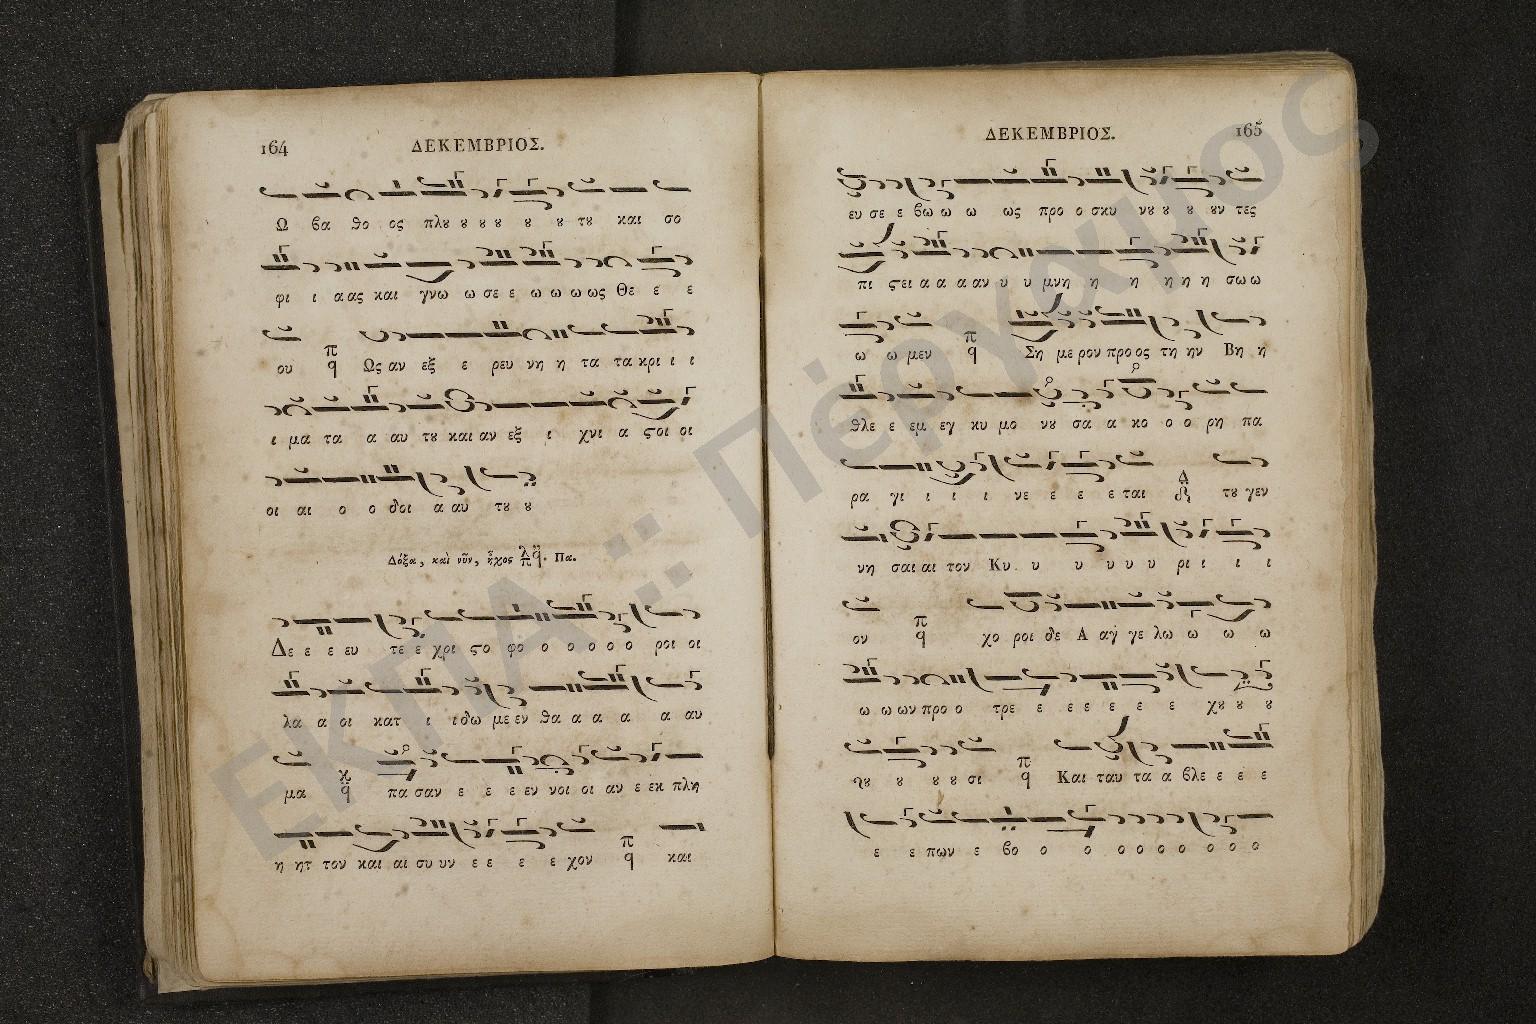 164 ΔΕΚΕΜΒΡΙΟΣ.
Ω βα θο ος πλȣ ȣ ȣ ȣ ȣ ȣ τȣ και σο
φι ι ας και γνω ω σε ε ω ω ω ως Θε ε ε
ου π q Ως αν εξ ε ρευ νη η τα τα κρι ι ι
ι μα τα α αυ τȣ και αν εξ ι χνι α ϛοι οι
οι αι ο ο δοι α αυ τȣ ȣ
Δόξα, καὶ νῦν, ἦχος λ π q. Πα.
Δε ε ε ευ τε ε χρι ϛο φο ο ο ο ο ο ροι οι
λα α οι κατ ι ιδω με εν θα α α α α αυ
μα κ q πα σαν ε ε ε εν νοι οι αν ε εκ πλη
η ητ τον και αι συ υν ε ε ε ε χον π q και
ΔΕΚΕΜΒΡΙΟΣ. 165
ευ σε ε βω ω ω ως προ ο σκυ νȣ ȣ ȣ ȣν τες
πι ϛει α α α αν υ υ μνη η η η η η σω ω
ω ω μεν π q Ση με ρον προ ος τη ην Βη η
θλε ε εμ εγ κυ μο νȣ σα α κο ο ο ρη πα
ρα γι ι ι ι νε ε ε ε εται Δ τȣ γεν
νη σαι αι τον Κυ υ υ υ υ υ ρι ι ι ι
ον π q χο ροι δε Α αγ γε λω ω ω ω
ω ω ων προ ο τρε ε ε ε ε ε ε χȣ ȣ ȣ
ȣ ȣ ȣ ȣ σι π q Και ταυ τα α βλε ε ε ε
ε ε πων ε βο ο ο ο ο ο ο ο ο ο
ΕΚΠΑ :: Πέργαμος